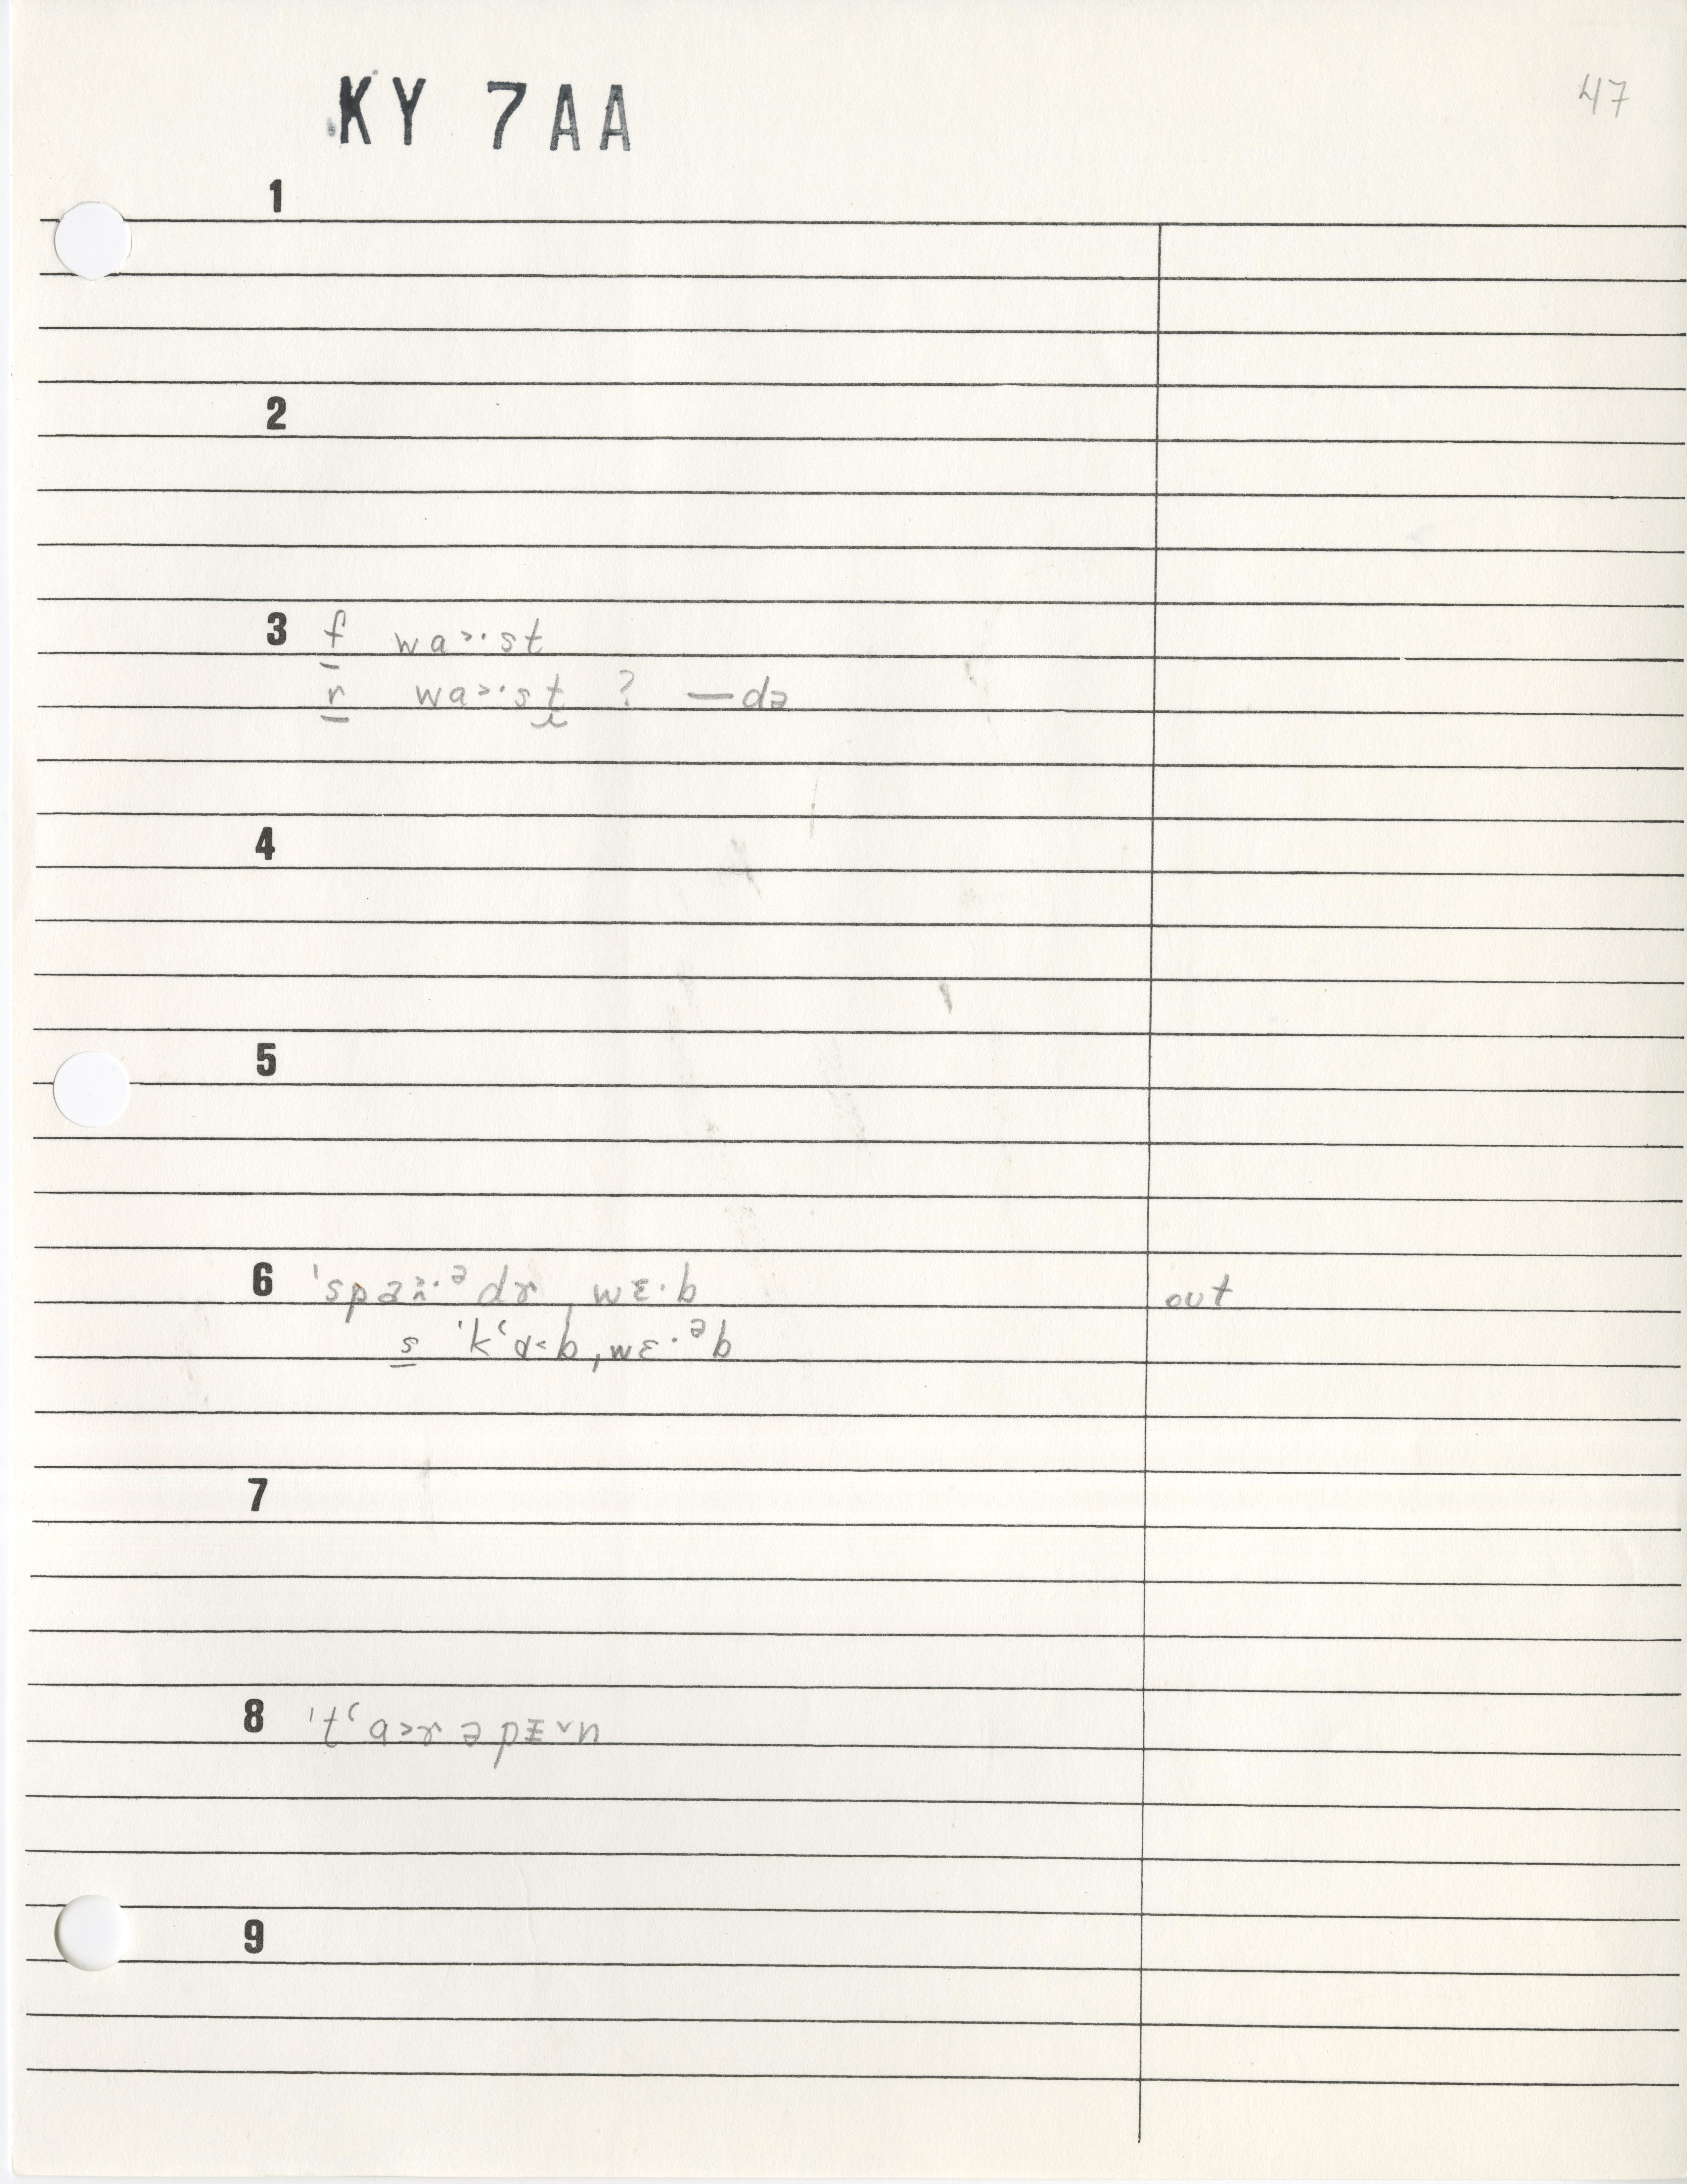 KY 7AA
47
1
2
3 f wa>·st
r wa>·st̬ ? —də
4
5
6 ˈspaɪ·ᵊdɚ ˌwɛ·b out
s ˈkʻɑ<bˌwɛ·ᵊb
7
8 ˈtʻa>rəpɪ̵˅n
9